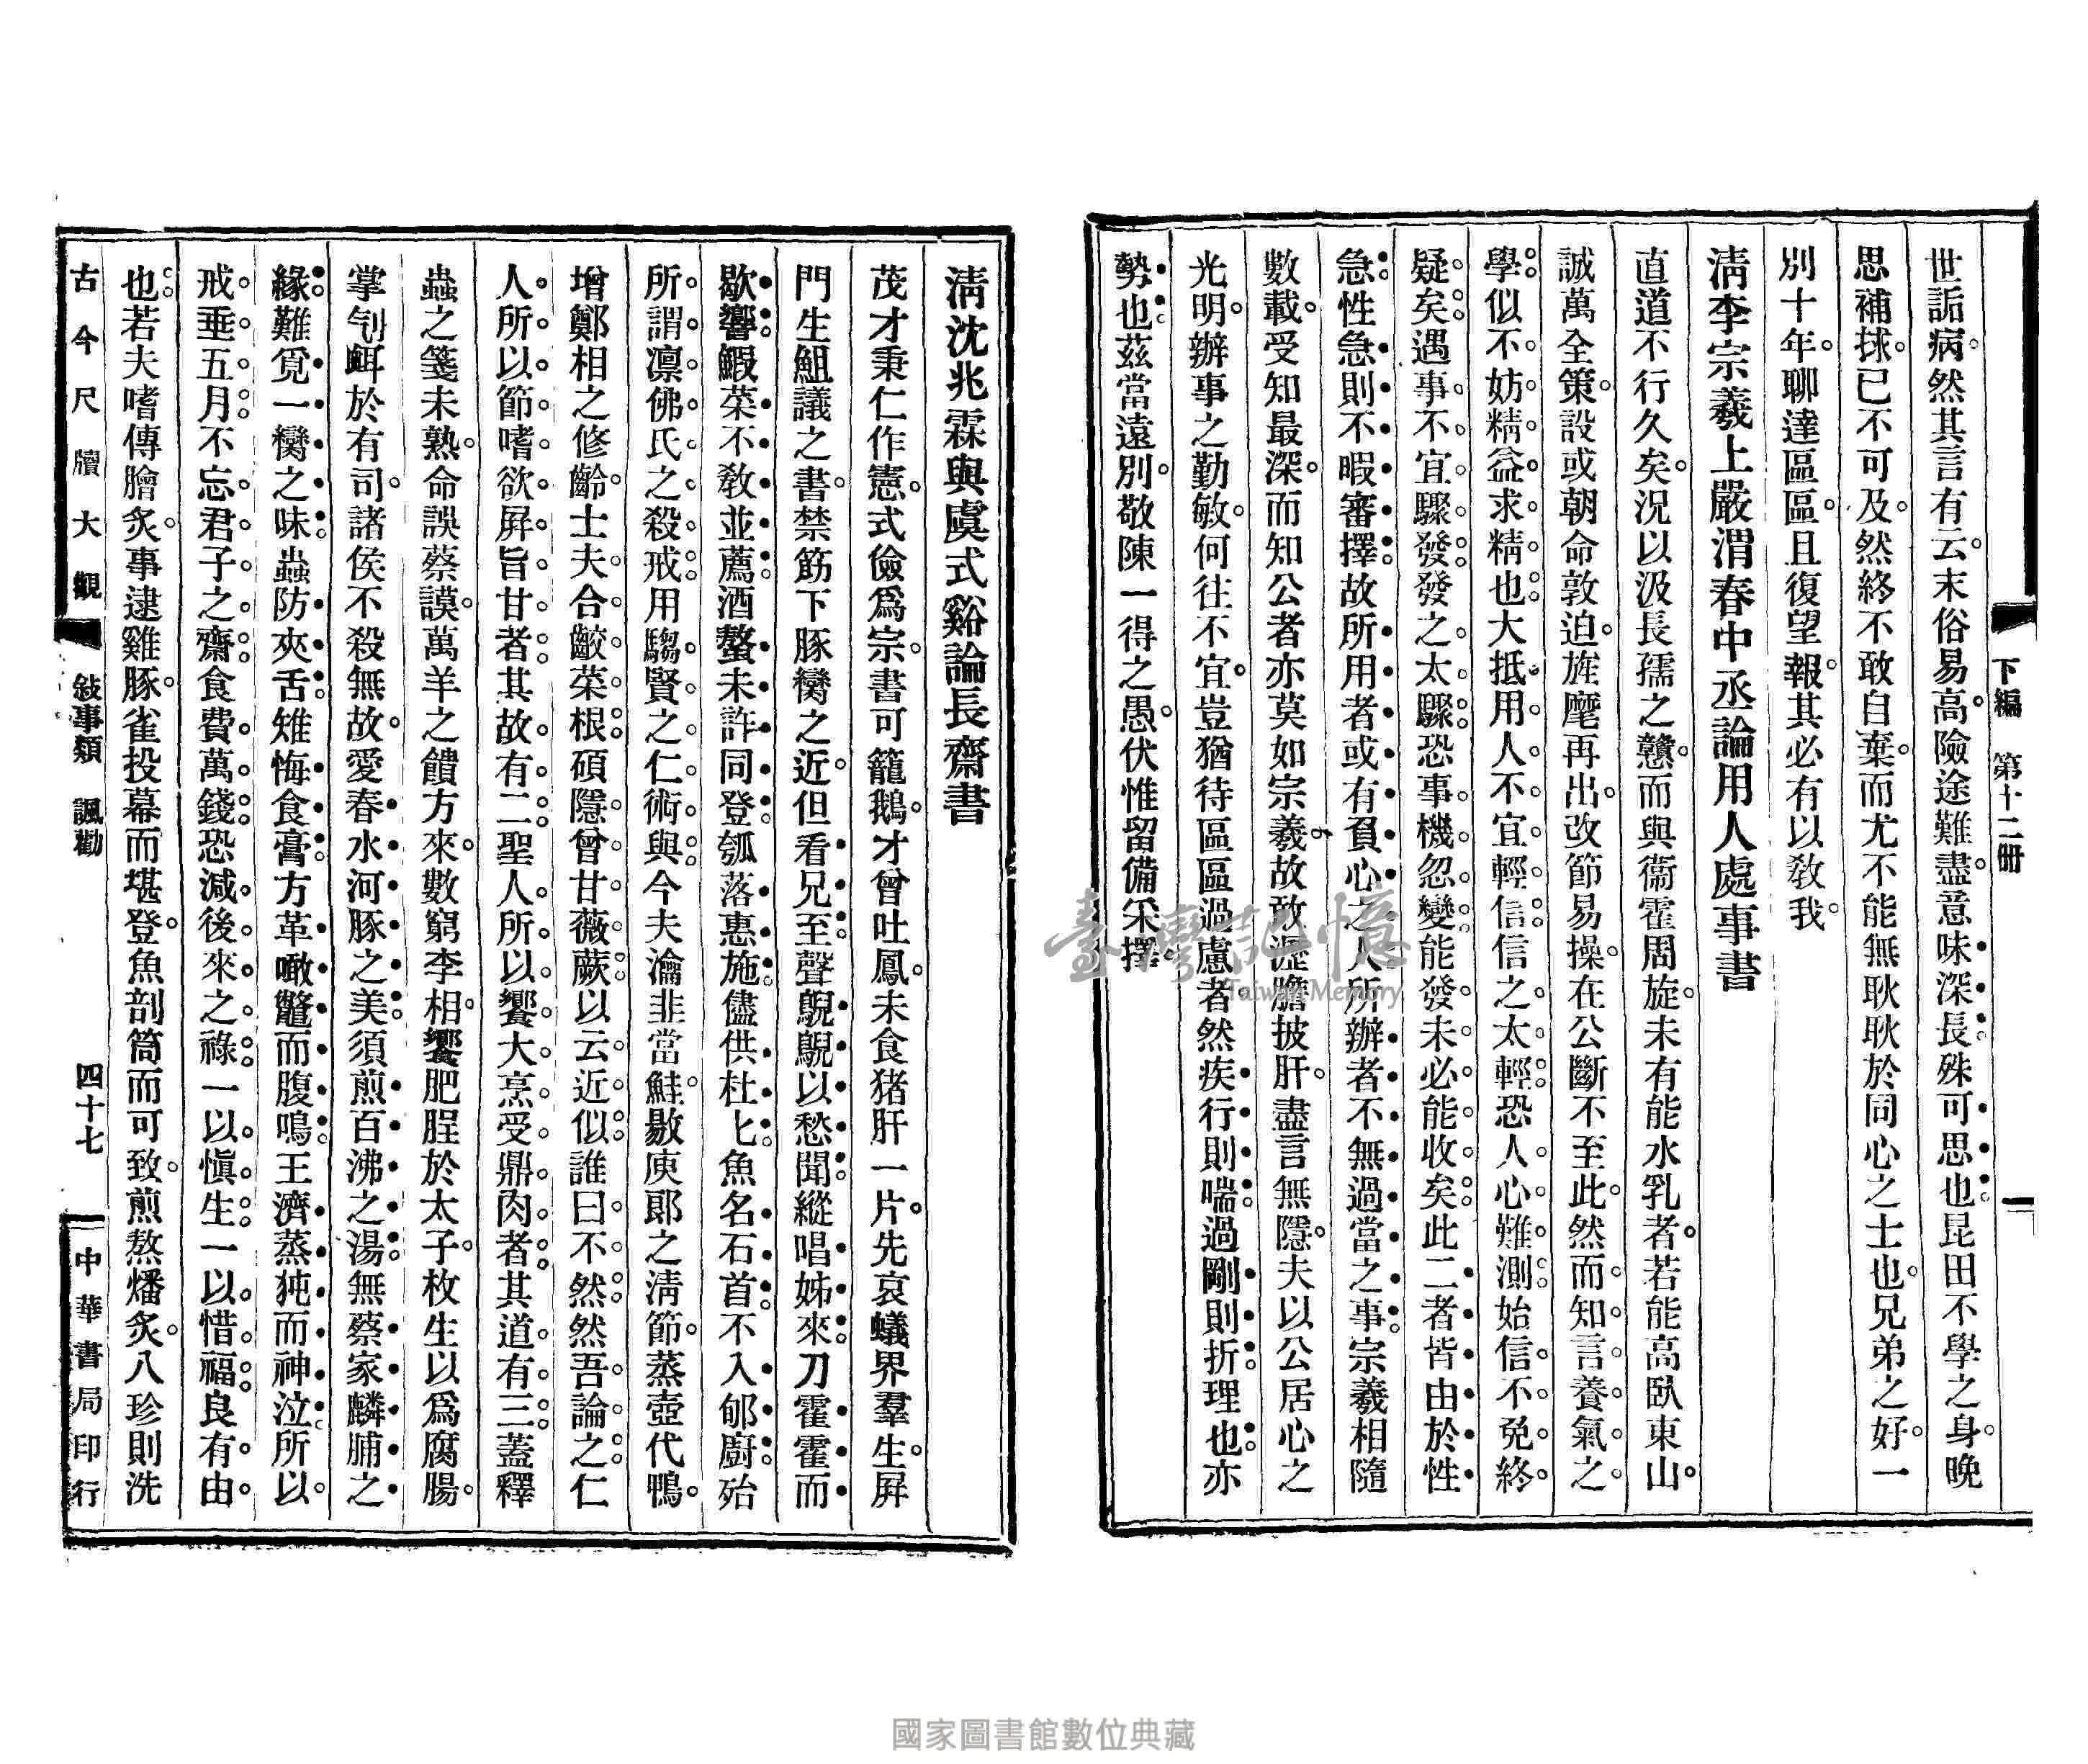 下編　第十二冊
世詬病然其言有云末俗易高險途難盡意味深長殊可思也昆田不學之身晚
思補捄已不可及然終不敢自棄而尤不能無耿耿於同心之士也兄弟之好一
別十年聊達區區且復望報其必有以敎我
淸李宗羲上嚴渭春中丞論用人處事書
直道不行久矣況以汲長孺之戇而與衞霍周旋未有能水乳者若能高臥東山
誠萬全策設或朝命敦迫旌麾再出改節易操在公斷不至此然而知言養氣之
學似不妨精益求精也大抵用人不宜輕信信之太輕恐人心難測始信不免終
疑矣遇事不宜驟發發之太驟恐事機忽變能發未必能收矣此二者皆由於性
急性急則不暇審擇故所用者或有負心之人所辦者不無過當之事宗羲相隨
數載受知最深而知公者亦莫如宗羲故敢瀝膽披肝盡言無隱夫以公居心之
光明辦事之勤敏何往不宜豈猶待區區過慮者然疾行則喘過剛則折理也亦
勢也茲當遠別敬陳一得之愚伏惟留備采擇
淸沈兆霖與虞式谿論長齋書
茂才秉仁作憲式儉爲宗書可籠鵝才曾吐鳳未食猪肝一片先哀蟻界羣生屛
門生䱉議之書禁筯下豚臠之近但看兄至聲鶃鶃以愁聞縱唱姊來刀霍霍而
歇響鰕菜不敎並薦酒螯未許同登瓠落惠施儘供杜匕魚名石首不入郇廚殆
所謂凛佛氏之殺戒用騶賢之仁術與今夫瀹韭當鮭敭庾郞之淸節蒸壺代鴨
增鄭相之修齡士夫合齩菜根碩隱曾甘薇蕨以云近似誰曰不然然吾論之仁
人所以節嗜欲屛旨甘者其故有二聖人所以饗大烹受鼎肉者其道有三蓋釋
蟲之箋未熟命誤蔡謨萬羊之饋方來數窮李相饗肥脭於太子枚生以爲腐腸
掌刉衈於有司諸侯不殺無故愛春水河豚之美須煎百沸之湯無蔡家麟脯之
緣難覓一臠之味蝨防夾舌雉悔食膏方革噉鼈而腹鳴王濟蒸㹠而神泣所以
戒垂五月不忘君子之齋食費萬錢恐減後來之祿一以愼生一以惜福良有由
也若夫嗜傳膾炙事逮雞豚雀投幕而堪登魚剖筒而可致煎熬燔炙八珍則洗
古今尺牘大觀　敍事類　諷勸　四十七　中華書局印行
臺灣記憶
Taiwan Memory
國家圖書館數位典藏